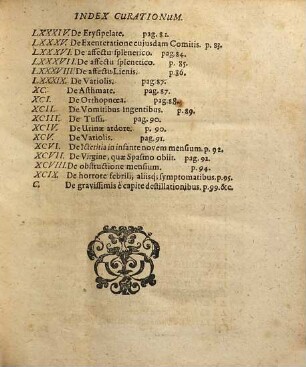 INDEX CURATIONUM.
LXXXIV. De Erysipelate. pag. 82.
LXXXV. De Exenteratione cujusdam Comitis. p. 83.
LXXXVI. De affectu splenetico. pag. 84.
LXXXVII. De affectu splenetico. p. 85.
LXXXVIII. De affectu Lienis. p. 86.
LXXXIX. De Variolis. pag. 87.
XC. De Asthmate. pag. 87.
XCI. De Orthopnœa. pag. 88.
XCII. De Vomitibus ingentibus. p. 89.
XCIII. De Tussi. pag. 90.
XCIV. De Urinæ ardore. p. 90.
XCV. De Variolis. pag. 91.
XCVI. De Icteritia in infante novem mensium. p. 92.
XCVII. De Virgine, quæ Spasmo obiit. pag. 92.
XCVIII. De obstructione mensium. p. 94.
XCIX. De horrore febrili, aliisq; symptomatibus. p. 95.
C. De gravissimis è capite destillationibus. p. 99. &c.